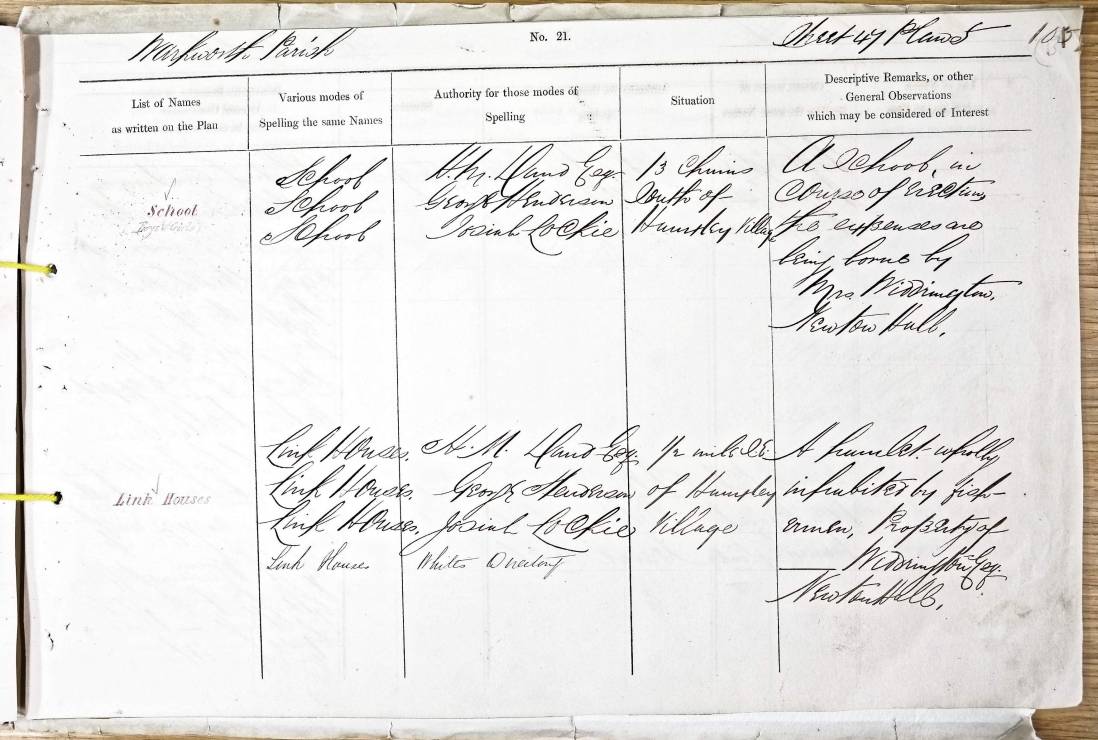 Warkworth Parish
No. 21.
Sheet 47 Plan 5
List of Names
as written on the Plan
Various modes of
Spelling the same Names
Authority for those modes of
Spelling
Situation
Descriptive Remarks, or other
General Observations
which may be considered of Interest
School
School
School
School
H. M. Dand Esq.
George Henderson
Josiah Lockie
13 Chains
South of
Village
A School, in
course of erection,
the expenses are
being borne by
Mrs. Widdrington,
Newton Hall.
Link Houses
Link Houses.
Link Houses.
Link Houses.
Link Houses
H. M. Dand Esq.
George Henderson
Josiah Lockie
Whites Directory
1/2 mile S.E.
of
Village
A hamlet wholly
inhabited by fish-
ermen, Property of
Widdrington Esq.
Newton Hall.